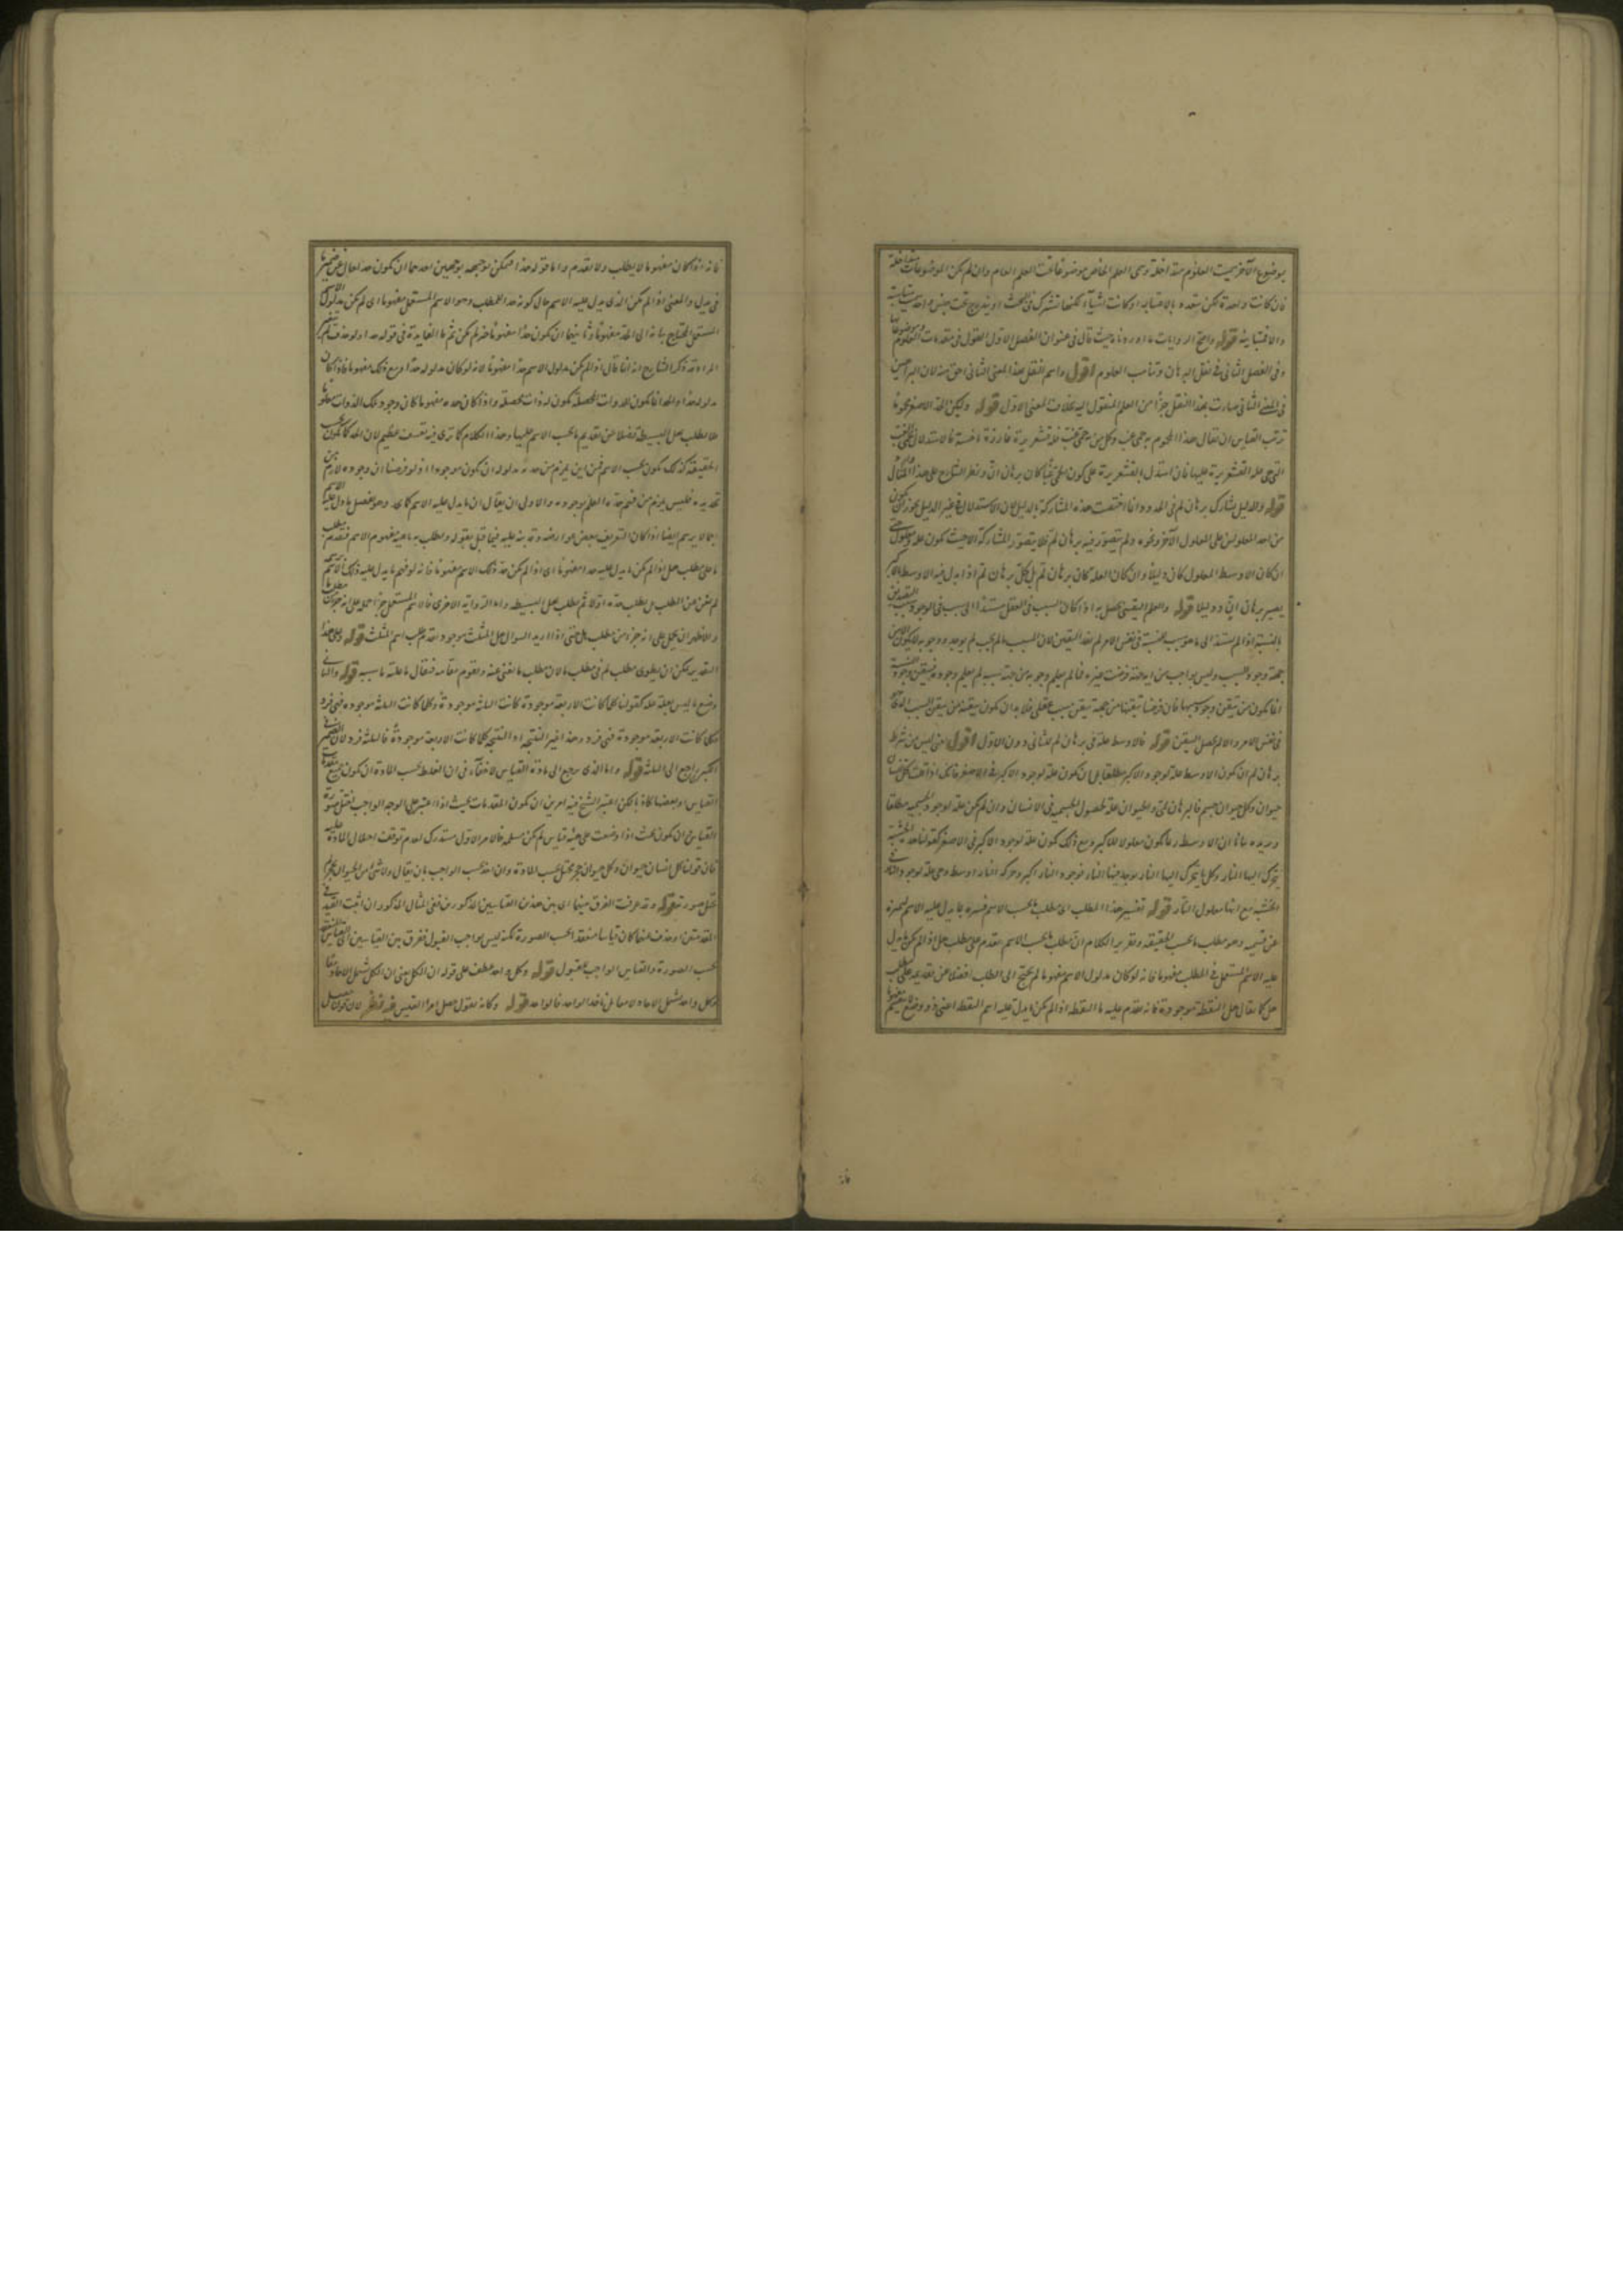 بموضوع الآخر سميت العلوم متداخلة وسمى العلم الخاص موضوعا تحت العلم العام وان لم يكن الموضوعات متداخلة
فان كانت واحدة لكن متعدده بالاعتبار او كانت اشياء لكنها تشترك في البحث او يندرج تحت جنس واحد متناسبة
والا فمتباينة قوله واصح الروايات ما اورده حيث قال في عنوان الفصل الاول القول في مقدمات العلوم وموضوعاتها
وفي الفصل الثاني في نقل البرهان وتناسب العلوم اقول واسم النقل بهذا المعنى الثاني احق منه لان البراهين
في المعنى الثاني صارت بهذا النقل جزأ من العلم المنقول اليه بخلاف المعنى الاول قوله وليكن الحد الاصغر محموم
ترتب القياس ان يقال هذا المحموم به حمى غب وكل من به حمى غب فله قشعريرة غارزة ناخسة فالاستدلال بحمى الغب
التي هي علة القشعريرة عليها فان استدل بالقشعريرة على كون الحمى غبا كان برهان ان ونظر الشارح على هذا المثال
قوله والدليل يشارك برهان لم في الحدود وانما اختصت هذه المشاركة بالدليل لان الاستدلال في غير الدليل يجوز ان يكون
من احد المعلولين على المعلول الآخر ونحوه ولم يتصور فيه برهان لم فلا يتصور المشاركة الا حيث يكون علة ومعلول حتى
ان كان الاوسط المعلول كان دليلا وان كان العلة كان برهان لم بل كل برهان لم اذا بدل فيه الاوسط بالاكبر
يصير برهان ان ودليلا قوله والعلم اليقيني يحصل به اذا كان السبب في العقل مستندا الى سبب في الوجود
بالنسبة اذا لم يستند الى ما هو سبب النسبة في نفس الامر لم يفد اليقين لان المسبب ما لم يجب لم يوجد ووجوبه لا يكون الا من
جهة وجود السبب وليس بواجب من اية جهة فرضت غيره فما لم يعلم وجوبه من جهة سببه لم يعلم وجوده فتيقن وجود النسبة
انما يكون من تيقن وجود سببها فان فرضنا تيقنها من جهة تيقن سبب عقلي فلا بد ان يكون تيقنه من تيقن السبب الذي
في نفس الامر والا لم يحصل اليقين قوله فالاوسط علة في برهان لم للثاني دون الاول اقول يعني ليس من شرط
برهان لم ان يكون الاوسط علة لوجود الاكبر مطلقا بل ان يكون علة لوجود الاكبر في الاصغر فانك اذا قلت كل انسان
حيوان وكل حيوان جسم فالبرهان لمي والحيوان علة لحصول الجسمية في الانسان وان لم يكن علة لوجود الجسمية مطلقا
ويزيده بيانا ان الاوسط ربما يكون معلولا للاكبر ومع ذلك يكون علة لوجود الاكبر في الاصغر كقولنا هذه الخشبة
تحرك اليها النار وكل ما يتحرك اليها النار يوجد فيها النار فوجود النار اكبر وحركة النار اوسط وهي علة لوجود النار في
الخشبة مع انها معلول النار قوله تفسير هذا المطلب اي مطلب ما بحسب الاسم فسره بما يدل عليه الاسم ليميزه
عن قسيمه وهو مطلب ما بحسب الحقيقة وتقرير الكلام ان مطلب ما بحسب الاسم يتقدم على مطلب هل اذا لم يكن ما يدل
عليه الاسم المستعمل في المطلب مفهوما فانه لو كان مدلول الاسم مفهوما لم يحتج الى الطلب فضلا عن تقديمه على مطلب
هل كما يقال هل النقطة موجودة فانه يتقدم عليه ما النقطة اذا لم يكن ما يدل عليه اسم النقطة اعني ذو وضع لا ينقسم مفهوما
فانه
فانه اذا كان مفهوما لا يطلب ولا يتقدم واما قوله حدا فيمكن توجيهه بوجهين احدهما ان يكون حدا حال عن ضمير ما
في يدل والمعنى اذا لم يكن الذي يدل عليه الاسم حال كونه حد المطلب وهو الاسم المستعمل مفهوما اي لم يكن مدلول الاسم
المستعمل المحتاج بيانه الى الحد مفهوما وثانيهما ان يكون حدا مفهوما خبر لم يكن ثم ما الفايدة في قوله حدا ولو حذف لتم
المراد قد ذكر الشارح انه انما قال اذا لم يكن مدلول الاسم حدا مفهوما لانه لو كان مدلوله حدا ومع ذلك مفهوما فاذا كان
مدلوله حدا والحد انما يكون للذوات المحصلة يكون له ذات محصلة واذا كان حده مفهوما كان وجود تلك الذوات معلوما
فلا يطلب بهل البسيطة فضلا عن تقديم ما بحسب الاسم عليها وهذا الكلام كما ترى فيه تعسف عظيم لان الحد كما يكون بحسب
الحقيقة كذلك يكون بحسب الاسم فمن اين يلزم من حدية مدلوله ان يكون موجودا ولو فرضنا ان وجوده لازم من
تحديده فليس يلزم من فهم حده العلم بوجوده والاولى ان يقال ان ما يدل عليه الاسم كما يحد وهو تفصيل ما دل عليه الاسم
اجمالا يرسم ايضا اذا كان التعريف ببعض عوارضه وقد نبه عليه فيما قبل بقوله ويطلب به ماهية مفهوم الاسم فتقدم مطلب
ما على مطلب هل اذا لم يكن ما يدل عليه حدا مفهوما اي اذا لم يكن حد ذلك الاسم مفهوما فانه لو فهم ما يدل عليه ذلك الاسم برسم
لم يغن عن الطلب بل يطلب حده اولا ثم يطلب بهل البسيطة واما الرواية الاخرى فالاسم المستعمل جزأ حمله على انه جزء من مطلب ما
والاظهر ان يحمل على انه جزء من مطلب هل حتى اذا اريد السوال هل المثلث موجود تقدم طلب اسم المثلث قوله وعلى هذا
التقدير يمكن ان يطوى مطلب لم في مطلب ما لان مطلب ما يغني عنه ويقوم مقامه فيقال ما علة ما سببه قوله والثاني
وضع ما ليس بعلة علة كقولنا كلما كانت الاربعة موجودة كانت الثلاثة موجودة وكلما كانت الثلاثة موجودة فهي فرد
فكلما كانت الاربعة موجودة فهي فرد وهذا غير النتيجة اذ النتيجة كلما كانت الاربعة موجودة فالثلاثة فرد لان الضمير في
الكبرى راجع الى الثلاثة قوله واما الذي يرجع الى مادة القياس لا خفاء في ان الغلط بحسب المادة ان يكون جميع مقدمات
القياس او بعضها كاذبا لكن اعتبر الشيخ فيه امرين ان يكون المقدمات بحيث اذا اعتبر على الوجه الواجب يختل صورة
القياس وان يكون بحيث اذا وضعت على هيئة قياس لم يكن مسلمة فالامر الاول مستدرك لعدم توقف ابطال المادة عليه
فان قولنا كل انسان حيوان وكل حيوان حجر مختل بحسب المادة وان اخذ بحسب الواجب بان يقال ولا شئ من الحيوان بحجر لم
يختل صورته قوله وقد عرفت الفرق بينهما اي بين هذين القياسين المذكورين ففي المثال المذكور ان اثبت القيد في
المقدمتين او حذف عنهما كان قياسا منعقدا بحسب الصورة لكنه ليس بواجب القبول ففرق بين القياسين
بحسب الصورة والقياس الواجب القبول قوله وكل واحد عطف على قوله ان الكل يعني ان الكل يشمل الاحاد معا
وكل واحد يشمل الاحاد لا معا بل ناخذ الواحد فالواحد قوله وكانه يقول فصل هذا التقسيم فيه نظر لان قوله فصل